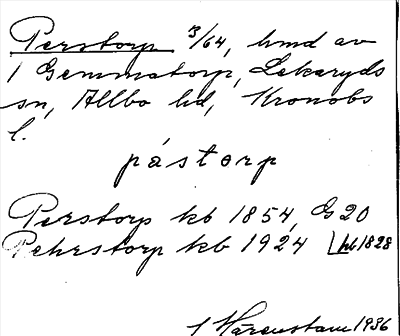 Perstorp 3/64, hmd av
1 Gemmatorp, Lekaryds
sn, Allbo hd, Kronobs
l.
pástorp
Perstorp kb 1854, G20
Pehrstorp kb 1924 hb 1828
1936